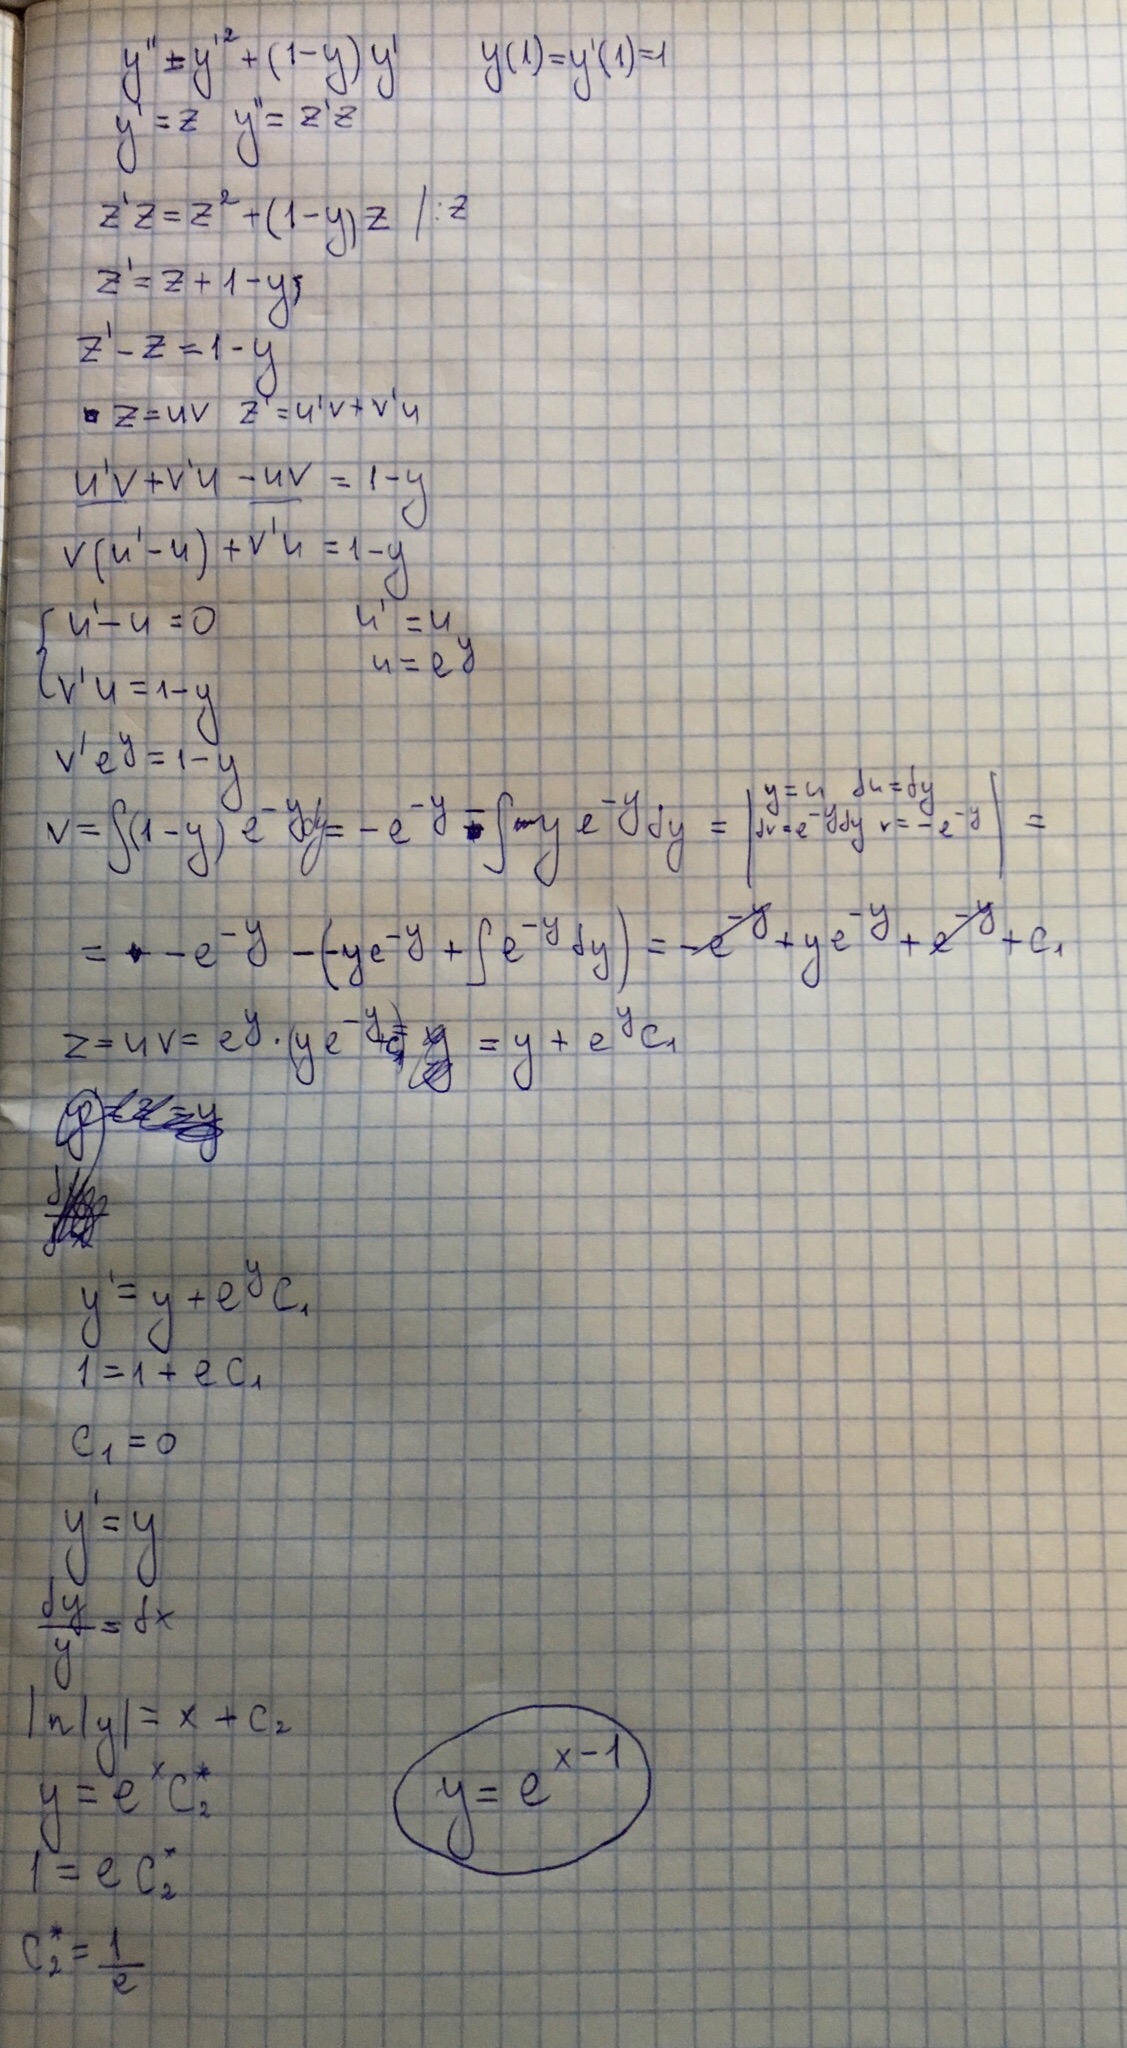 y'' = y'² + (1-y) y' y(1)=y'(1)=1
y' = z y'' = z'z
z'z = z² + (1-y) z /:z
z' = z + 1 - y;
z' - z = 1 - y
z = uv z' = u'v + v'u
u'v + v'u - uv = 1 - y
v(u' - u) + v'u = 1 - y
{ u' - u = 0 u' = u
u = e^y
v'u = 1 - y
v'e^y = 1 - y
v = ∫(1-y) e^-y dy = -e^-y - ∫ y e^-y dy = | y = u du = dy dv = e^-y dy v = -e^-y | =
= -e^-y - (-ye^-y + ∫ e^-y dy) = -e^-y + ye^-y + e^-y + C₁
z = uv = e^y · (ye^-y + C₁) = y + e^y C₁
y' = y + e^y C₁
1 = 1 + e C₁
C₁ = 0
y' = y
dy/y = dx
ln|y| = x + C₂
y = e^x C₂* y = e^x-1
1 = e C₂*
C₂* = 1/e